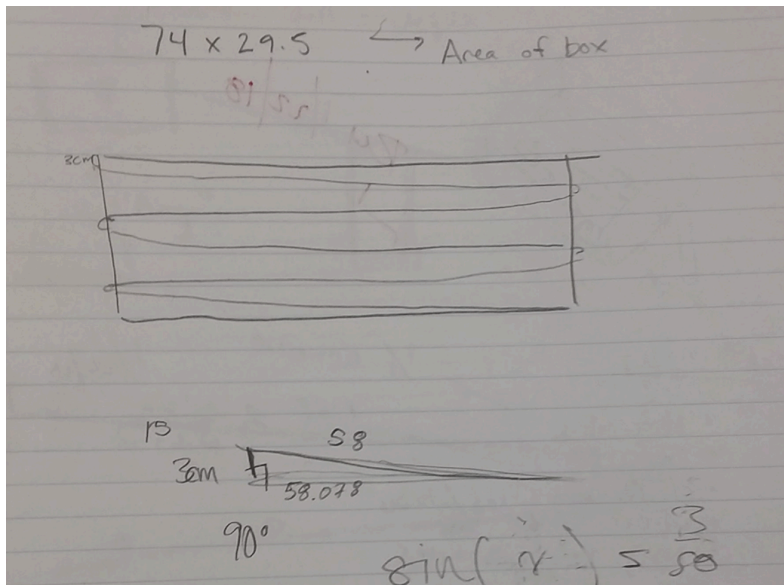 74 x 29.5 ↳ Area of box
3cm
58
3cm
58.078
90°
sin( x ) = 3/58